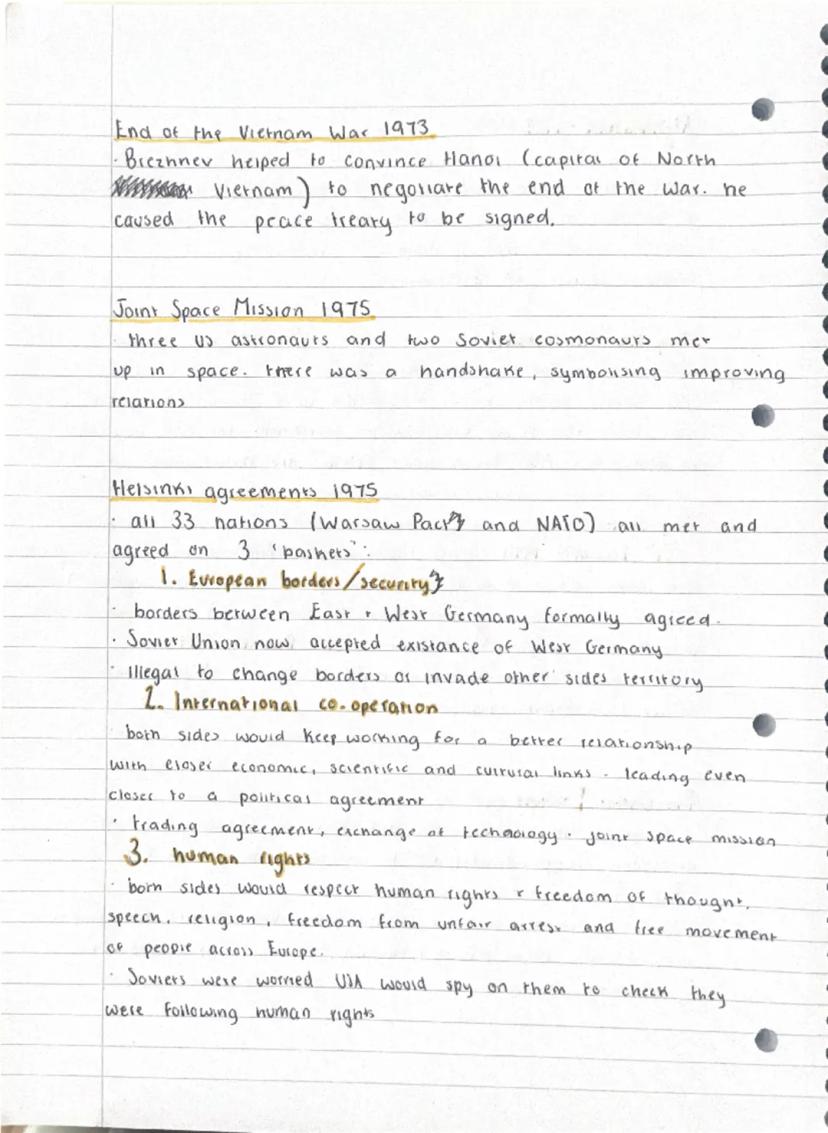 End of the Vietnam War 1973
· Brezhnev helped to convince Hanoi (capital of North
Vietnam) to negotiate the end of the war. he
caused the peace treaty to be signed.
Joint Space Mission 1975
· three US astronauts and two Soviet cosmonauts met
up in space. there was a handshake, symbolising improving
relations
Helsinki agreements 1975
· all 33 nations (Warsaw Pact and NATO) all met and
agreed on 3 'baskets':
1. European borders/security
· borders between East + West Germany formally agreed.
· Soviet Union now accepted existance of West Germany
· illegal to change borders or invade other sides territory
2. International co-operation
· both sides would keep working for a better relationship
with closer economic, scientific and cultural links - leading even
closer to a political agreement
· trading agreement, exchange of technology · joint space mission
3. human rights
· both sides would respect human rights + freedom of thought,
speech, religion, freedom from unfair arrest and free movement
of people across Europe.
· Soviets were worried USA would spy on them to check they
were following human rights